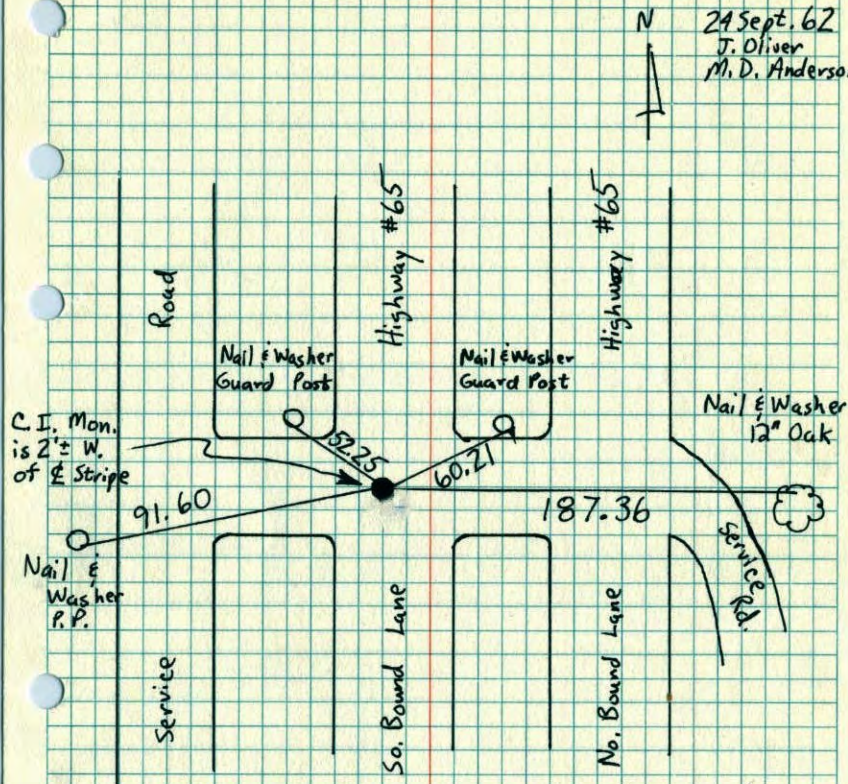 N
24 Sept. 62
J. Oliver
M. D. Anderso
Highway #65
Highway #65
Road
Nail & Washer
Guard Post
Nail & Washer
Guard Post
Nail & Washer
12" Oak
C. I. Mon.
is 2'± W.
of ℄ Stripe
52.25
60.21
91.60
187.36
Nail &
Washer
P.P.
Service Rd.
Service
So. Bound Lane
No. Bound Lane